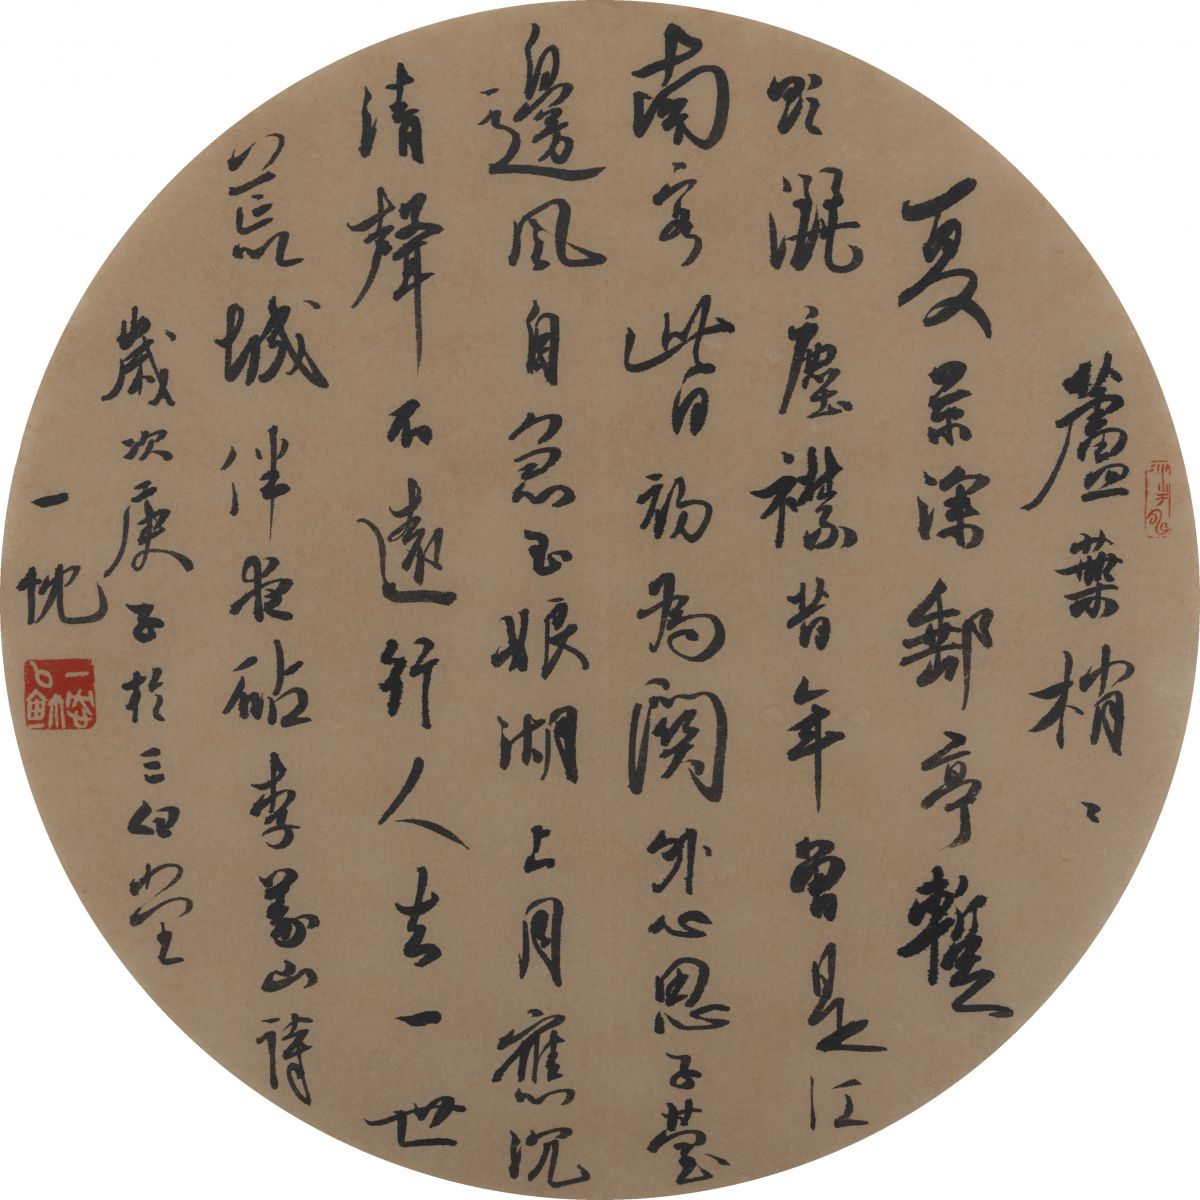 蘆葉梢〻
夏景深郵亭暫
欲灑塵襟昔年曾是江
南客此日初為關外心思子臺
邊風自急玉娘湖上月應沉
清聲不遠行人去一世
荒城伴夜砧李義山詩
歲次庚子於三堂
一忱